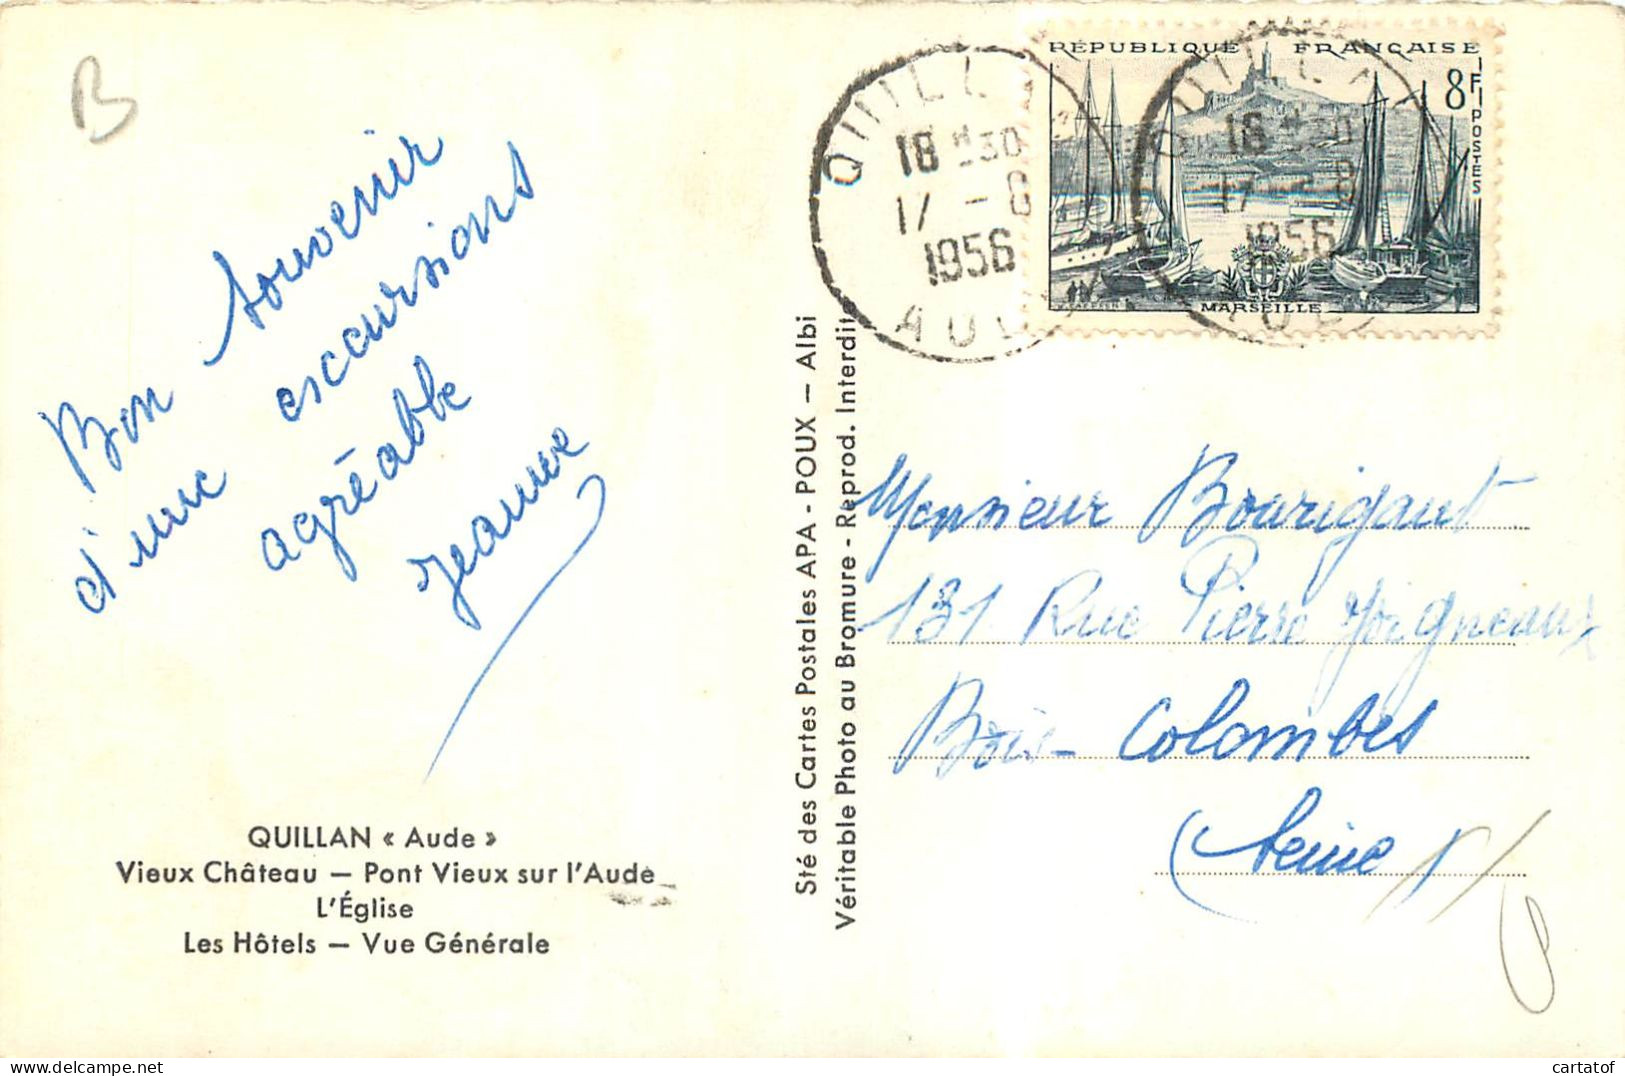 B
Bon souvenir
d'une esccursions
agréable
Jeanne
QUILLAN « Aude »
Vieux Château — Pont Vieux sur l'Aude
L'Église
Les Hôtels — Vue Générale
Sté des Cartes Postales APA - POUX — Albi
Véritable Photo au Bromure - Reprod. Interdite
RÉPUBLIQUE FRANÇAISE
8F
POSTES
MARSEILLE
QUILLAN
18 H 30
17 - 8
1956
AUDE
18 H 30
17 - 8
1956
Monsieur Bourigaut
131 Rue Pierre Joigneaux
Bois-Colombes
(Seine)
cartatof